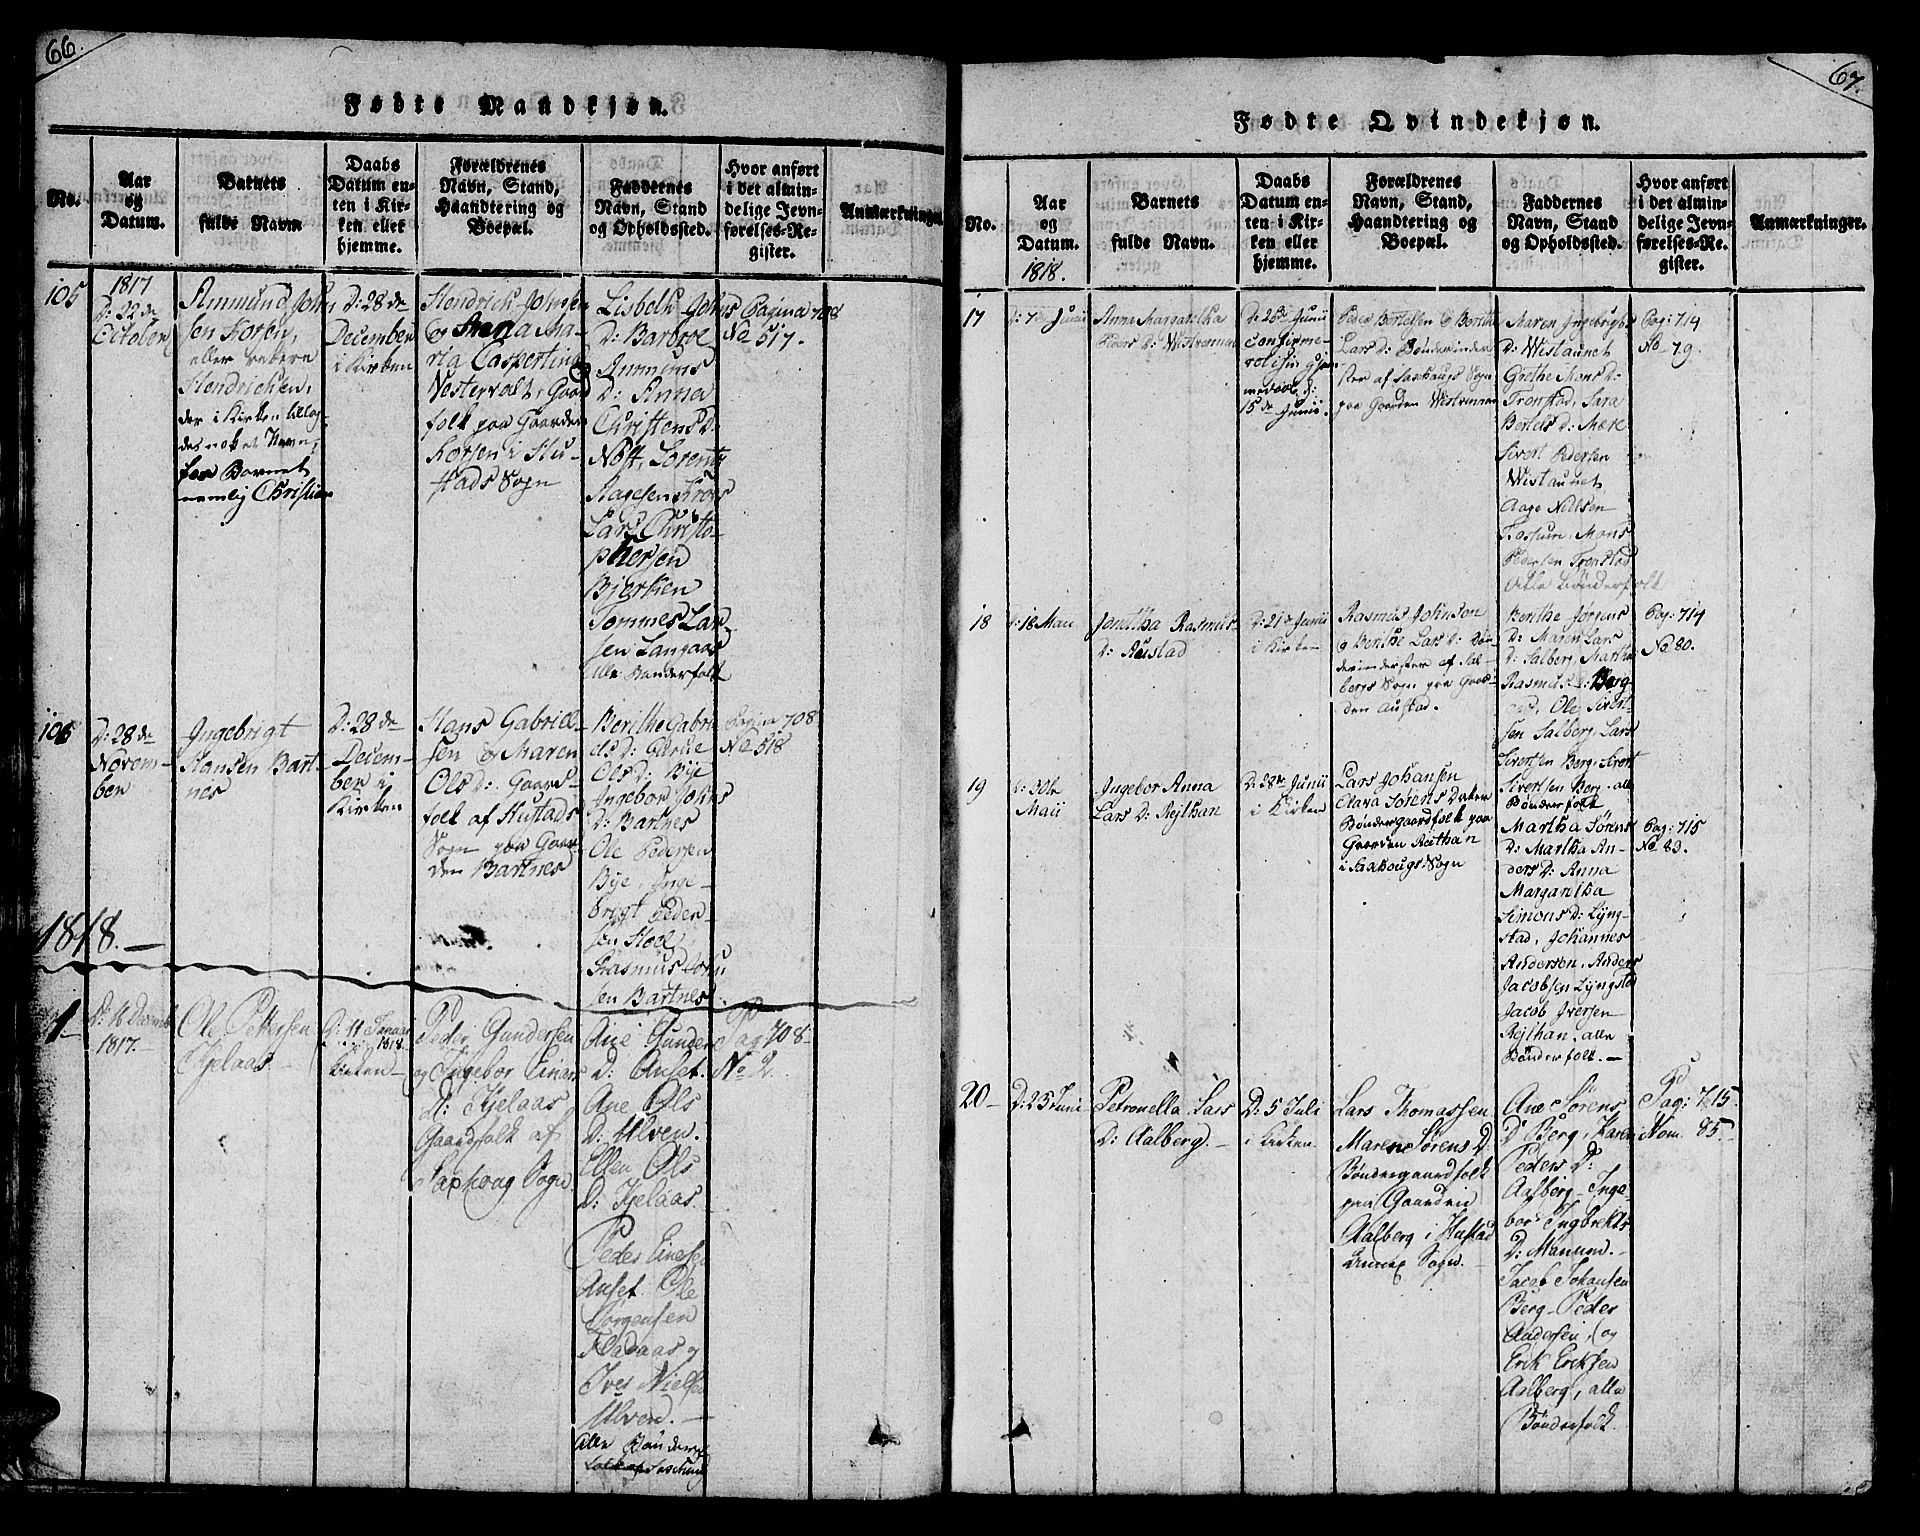 66.
Fødte Mandkjøn.
No.
Aar
og
Datum.
Barnets
fulde Navn
Daabs
Datum en-
ten i Kir-
ken eller
hjemme.
Forældrenes
Navn, Stand,
Haandtering og
Boepæl.
Faddernes
Navn, Stand
og Opholdssted.
Hvor anført
i det almin-
delige Jevn-
førelses-Re-
gister.
Anmærkninger
105
1817
D: 22de
October
Ammund John
sen Korsen,
eller rettere
Hendrichsen,
der i Kirken tillag-
des noket Navn,
for Barnet
nemlig Christian
D: 28de
December
i Kirken
Hendrich Johnsen
og Maria Ma-
ria Caspertina
Vestervolt, Gaard
folk paa Gaarden
Korsen i Hu-
stads Sogn
Lisbeth Johns
D: Barbroe
Ammuns
D: Anna
Christens D:
Nøst, Lorents
Aagesen Kros
Lars Christo-
phersen
Bjerken
Tommes Lar-
sen Langaas
alle Bønderfolk
Pagina 708
No 517.
106
D: 28de
Novem-
ber
Ingebrigt
Hansen Bart-
nes
D: 28de
Decem-
ber i
Kirken
Hans Gabriel-
sen & Maren
Ols D: Gaard-
folk af Hustads
Sogn paa Gaar-
den Bartnes
Berithe Gabri
els D:
Ols D: Bye
Ingebor Johns
D: Bartnes
Ole Pedersen
Bye, Inge-
brigt Peder-
sen Hoel,
Rasmus John
sen Bartnes
Pagina 708
No 518
1818. —
1
D: 16 Decemb
1817.
Ole Pettersen
Kjelaas. —
D: 11 Januar
1818.
Kirken —
Peder Gundersen
og Ingebor Einars
D: Kjelaas
Gaardfolk af
Saxhoug Sogn.
Ane Gunders
D: Auset.
Ane Ols
D: Ulven.
Ellen Ols
D: Kjelaas.
Peder Einersen
Auset. Ole
Jørgensen
Fladaas og
Iver Nielsen
Ulven. —
Alle Bønder
Pag 708-
No 2
67.
Fødte Qvindekjøn.
No.
Aar
og
Datum.
1818.
Barnets
fulde Navn.
Daabs
Datum en-
ten i Kir-
ken eller
hjemme.
Forældrenes
Navn, Stand,
Haandtering og
Boepæl.
Faddernes
Navn, Stand
og Opholdssted.
Hvor anført
i det almin-
delige Jevn-
førelses-Re-
gister.
Anmærkninger.
17
d: 7 Junii
Anna Margaretha
Peders D: Wistrennen
D: 25de Junii
confirme-
ret i sin Hjem-
medaab, d:
15de Junii.
Peder Bertelsen & Berithe
Lars D: Bønderinder
ster af Saxhougs Sogn
paa Gaarden Wistrennen
Maren Ingebrigts
D: Wistaunet
Grethe Mons D:
Tronstad, Sara
Bertels D: Mære
Sivert Pedersen
Wistaunet
Aage Nielsen
Kastum, Mons
Pedersen Tronstad
alle bønderfolk
Pag: 714
No 79.
18
d: 18 Maii
Jonetha Rasmus-
D: Austad
D: 21de Junii
i Kirken
Rasmus Johnson
og Berithe Lars D: Bøn-
derinderster af Sal-
bergs Sogn paa Gaar-
den Austad.
Berithe Jørgens
D: Maren Lars
D: Salberg, Martha
Rasmus D: Berg
Ole Sivert-
sen Salberg, Lars
Sivertsen Berg, Sivert
Sivertsen Berg, alle
Bønderfolk
Pag: 714
No 80.
19
d: 30te
Maii
Ingebor Anna
Lars D: Rejlhan
D: 28de Junii
i Kirken
Lars Johansen
Clara Sørens Datter
Bøndergaardfolk paa
Gaarden Reithan
i Saxhougs Sogn
Martha Sørens
D: Martha An-
ders D: Anna
Margaretha
Simons D: Lyng-
stad, Johannes
Andersen, Anders
Jacobsen Lyngstad
Jacob Iversen
Rejlhan, alle
Bønderfolk. —
Pag: 715
No 83.
20 —
D: 25 Juni
Petronella Lars
D: Aalberg. —
D: 5 Juli
i Kirken.
Lars Thomassen
Maren Sørens D:
Bøndergaardfolk
paa Gaarden
Aalberg i Hustad
Annex Sogn. —
Ane Sørens
D: Berg, Karen
Peders D:
Aalberg — Inge-
bor Ingbrekts
D: Manum. —
Jacob Johansen
Berg — Peder
Andersen, og
Erik Eriksen
Aalberg, alle
Bønderfolk.
Pag: 715.
Nom. 85. —